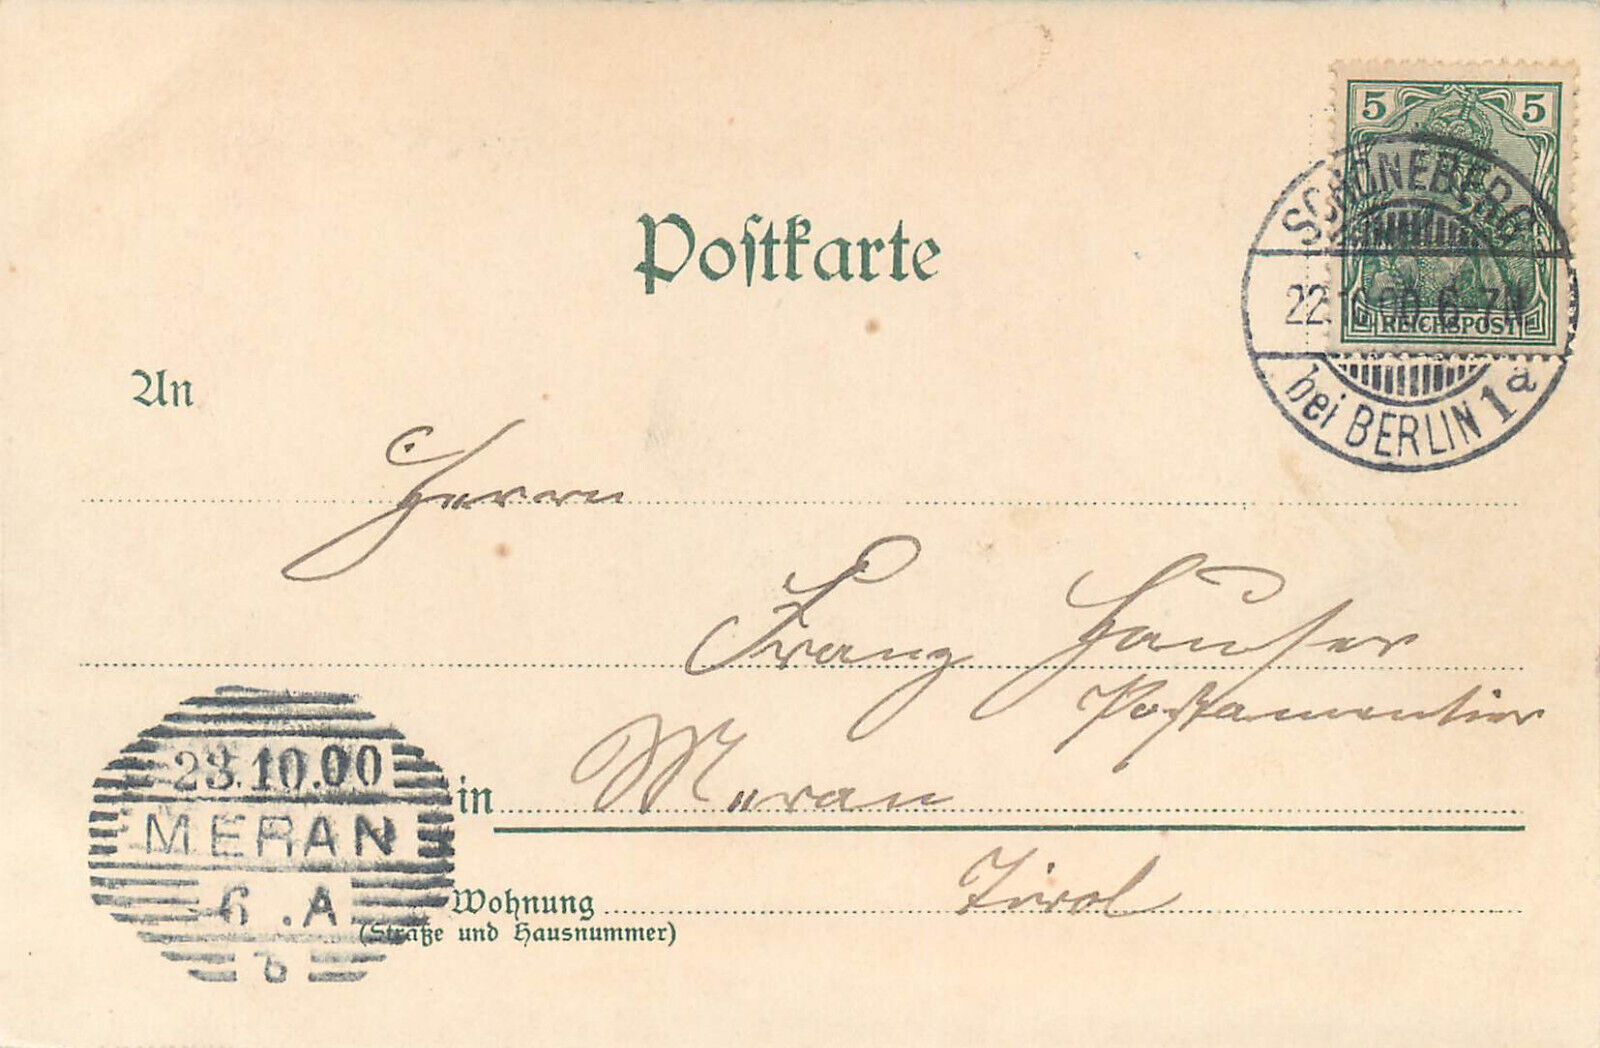 5 5
REICHSPOST
SCHÖNEBERG
22.10.00 6-7N
bei BERLIN 1a
Postkarte
An
Herrn
Franz Hauser
Possamentier
in Meran
Tirol
Wohnung
(Straße und Hausnummer)
23.10.00
MERAN
6.A
b